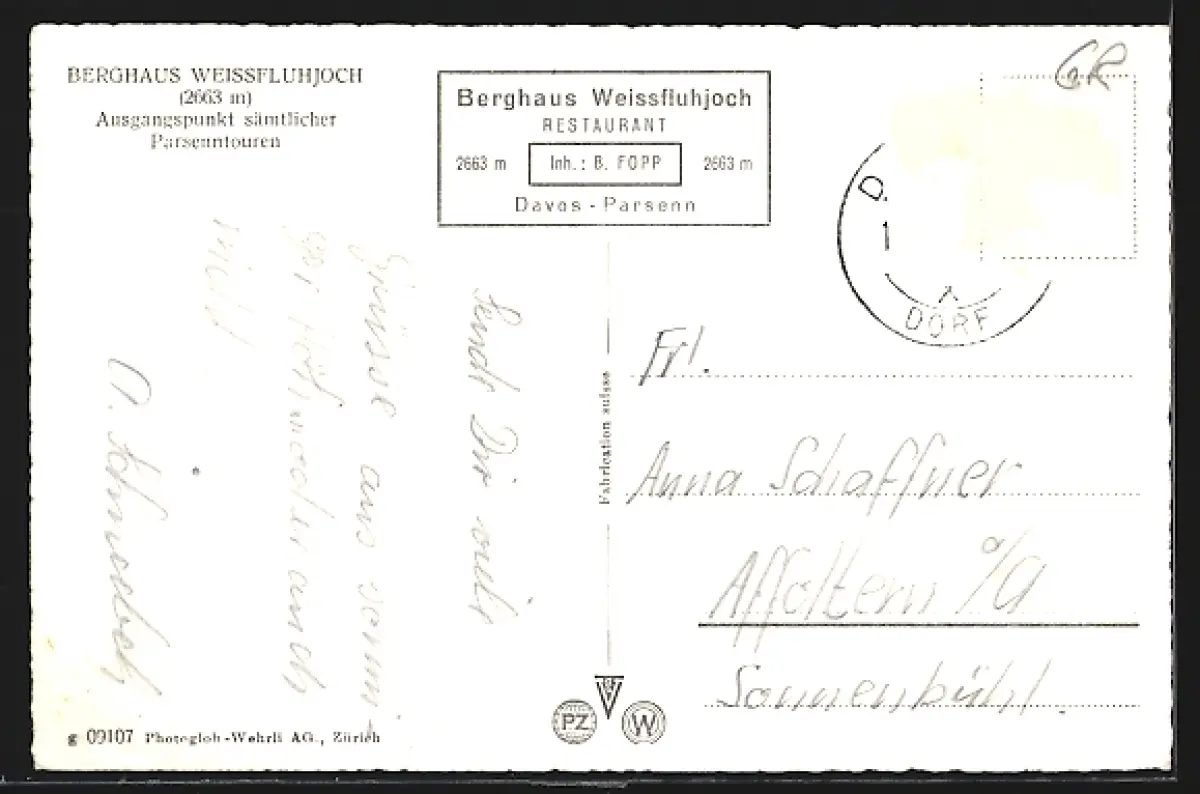 BERGHAUS WEISSFLUHJOCH
(2663 m)
Ausgangspunkt sämtlicher
Parsenntouren
Berghaus Weissfluhjoch
RESTAURANT
2663 m Inh.: B. FOPP 2663 m
Davos - Parsenn
GR
D.
DORF
Sendt Dir viele
Grüsse aus
mich
Fabrication suisse
Frl.
Anna Schaffner
Affoltern a/A
Sonnenbühl.
PZ W
g 09107 Photoglob-Wehrli AG., Zürich